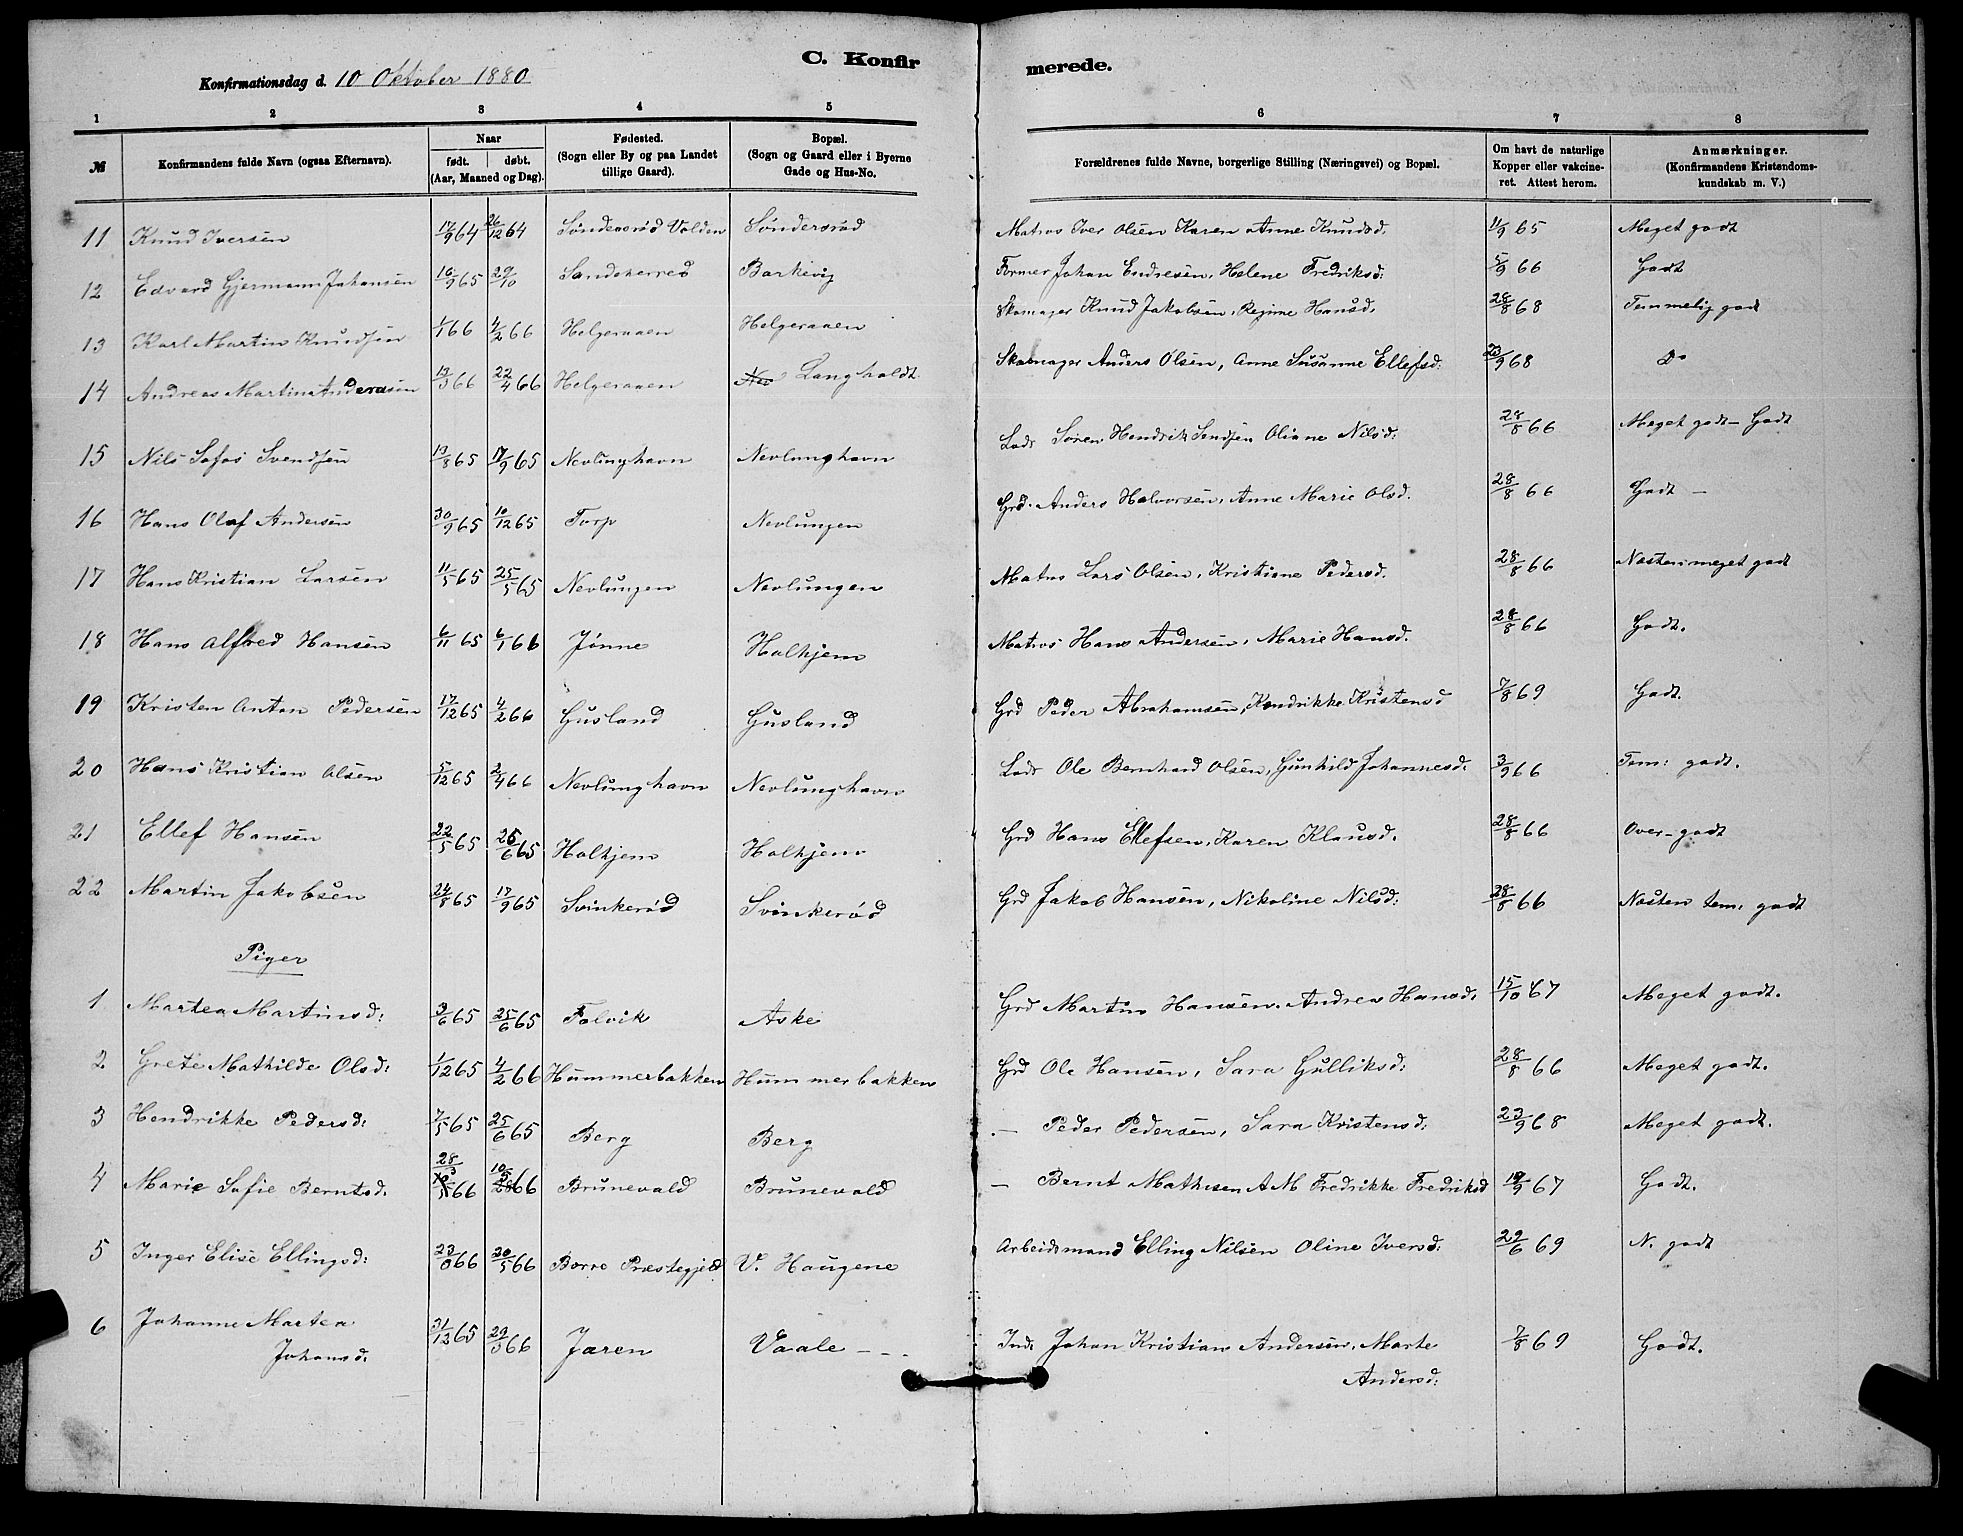 C. Konfirmerede.
Konfirmationsdag d. 10 Oktober 1880
1 2 3 4 5 6 7 8
№ | Konfirmandens fulde Navn (ogsaa Efternavn). | Naar født. | døbt. (Aar, Maaned og Dag). | Fødested. (Sogn eller By og paa Landet tillige Gaard). | Bopæl. (Sogn og Gaard eller i Byerne Gade og Hus-No. | Forældrenes fulde Navne, borgerlige Stilling (Næringsvei) og Bopæl. | Om havt de naturlige Kopper eller vakcineret. Attest herom. | Anmærkninger. (Konfirmandens Kristendomskundskab m. V.)
11 Knud Iversen 17/9 64 26/12 64 Søndersrød Volden Søndersrød Matros Iver Olsen Karen Anne Knudsd. 11/9 65 Meget godt
12 Edvard Gjermann Johansen 10/9 65 29/10 Sandeherred Barkevig Former Johan Endresen, Helene Fredriksd: 5/9 66 Godt
13 Karl Martin Knudsen 1/1 66 4/2 66 Helgeraaen Helgeraaen Skomager Knud Jakobsen, Regine Hansd. 28/8 68 Temmelig godt
14 Andreas Martin Andersen 13/3 66 22/4 66 Helgeraaen Langholdt Skomager Anders Olsen, Anne Susanne Ellefsd: 23/9 68 Do
15 Nils Sofus Svendsen 13/8 65 17/9 65 Nevlunghavn Nevlunghavn Lods Søren Hendrik Sendsen Oliane Nilsd: 28/8 66 Meget godt - Godt
16 Hans Olaf Andersen 30/9 65 10/12 65 Torp Nevlungen Grd. Anders Halvorsen, Anne Marie Olsd. 28/8 66 Godt -
17 Hans Kristian Larsen 11/5 65 25/5 65 Nevlungen Nevlungen Matros Lars Olsen, Kristiane Pedersd. 28/8 66 Næsten meget godt
18 Hans Alfred Hansen 6/11 65 6/1 66 Jønne Halhjem Matros Hans Andersen, Marie Hansd. 28/8 66 Godt.
19 Kristen Anton Pedersen 17/12 65 4/2 66 Gusland Gusland Grd Peder Abrahamsen, Hendrikke Kristensd 7/8 69 Godt.
20 Hans Kristian Olsen 5/12 65 2/4 66 Nevlunghavn Nevlunghavn Lods Ole Bernhard Olsen, Gunhild Johannesd. 3/9 66 Tem: godt.
21 Ellef Hansen 22/5 65 25/6 65 Halhjem Halhjem Grd Hans Ellefsen, Karen Klausd. 28/8 66 Over-godt
22 Martin Jakobsen 24/8 65 17/9 65 Svinkerød Svinkerød Grd Jakob Hansen, Nikoline Nilsd: 28/8 66 Næsten tem: godt
Piger
1 Martea Martinsd: 3/6 65 25/6 65 Falvik Aske Grd Martin Hansen, Andrea Hansd. 15/10 67 Meget godt.
2 Grete Mathilde Olsd: 1/12 65 4/2 66 Hummerbakken Hummerbakken Grd Ole Hansen, Sara Gulliksd: 28/8 66 Meget godt.
3 Hendrikke Pedersd: 7/5 65 25/6 65 Berg Berg — Peder Pedersen, Sara Kristensd: 23/9 68 Meget godt.
4 Marie Sofie Berntsd. 28/3 66 10/5 66 Brunevald Brunevald — Bernt Mathisen A M Fredrikke Fredriksd 19/9 67 Godt.
5 Inger Elise Ellingsd: 23/ 66 20/5 66 Borre Præstegjeld V. Haugene Arbeidsmand Elling Nilsen Oline Iversd: 22/6 69 N. godt
6 Johanne Martea Johansd. 31/12 65 29/3 66 Jaren Vaale - - . Ind. Johan Kristian Andersen, Marte Andersd: 7/8 69 Godt.